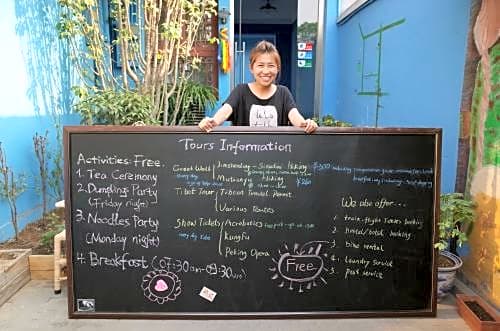 Tours Information
Activities: Free.
1. Tea Ceremony
2. Dumplings Party
(Friday night)
3. Noodles Party
(Monday night)
4. Breakfast (07:30am-09:30am)
Great Wall
Jinshanling - Simatai hiking ¥300
Mutianyu hiking
¥260
Tibet Tour
Tibetan Travel Permit
Various Routes
Show Tickets
Acrobatics
Kungfu
Peking Opera
Free
We also offer...
1. train, flight tickets
2. hotel/hostel booking
3. bike rental
4. laundry service
5. post service